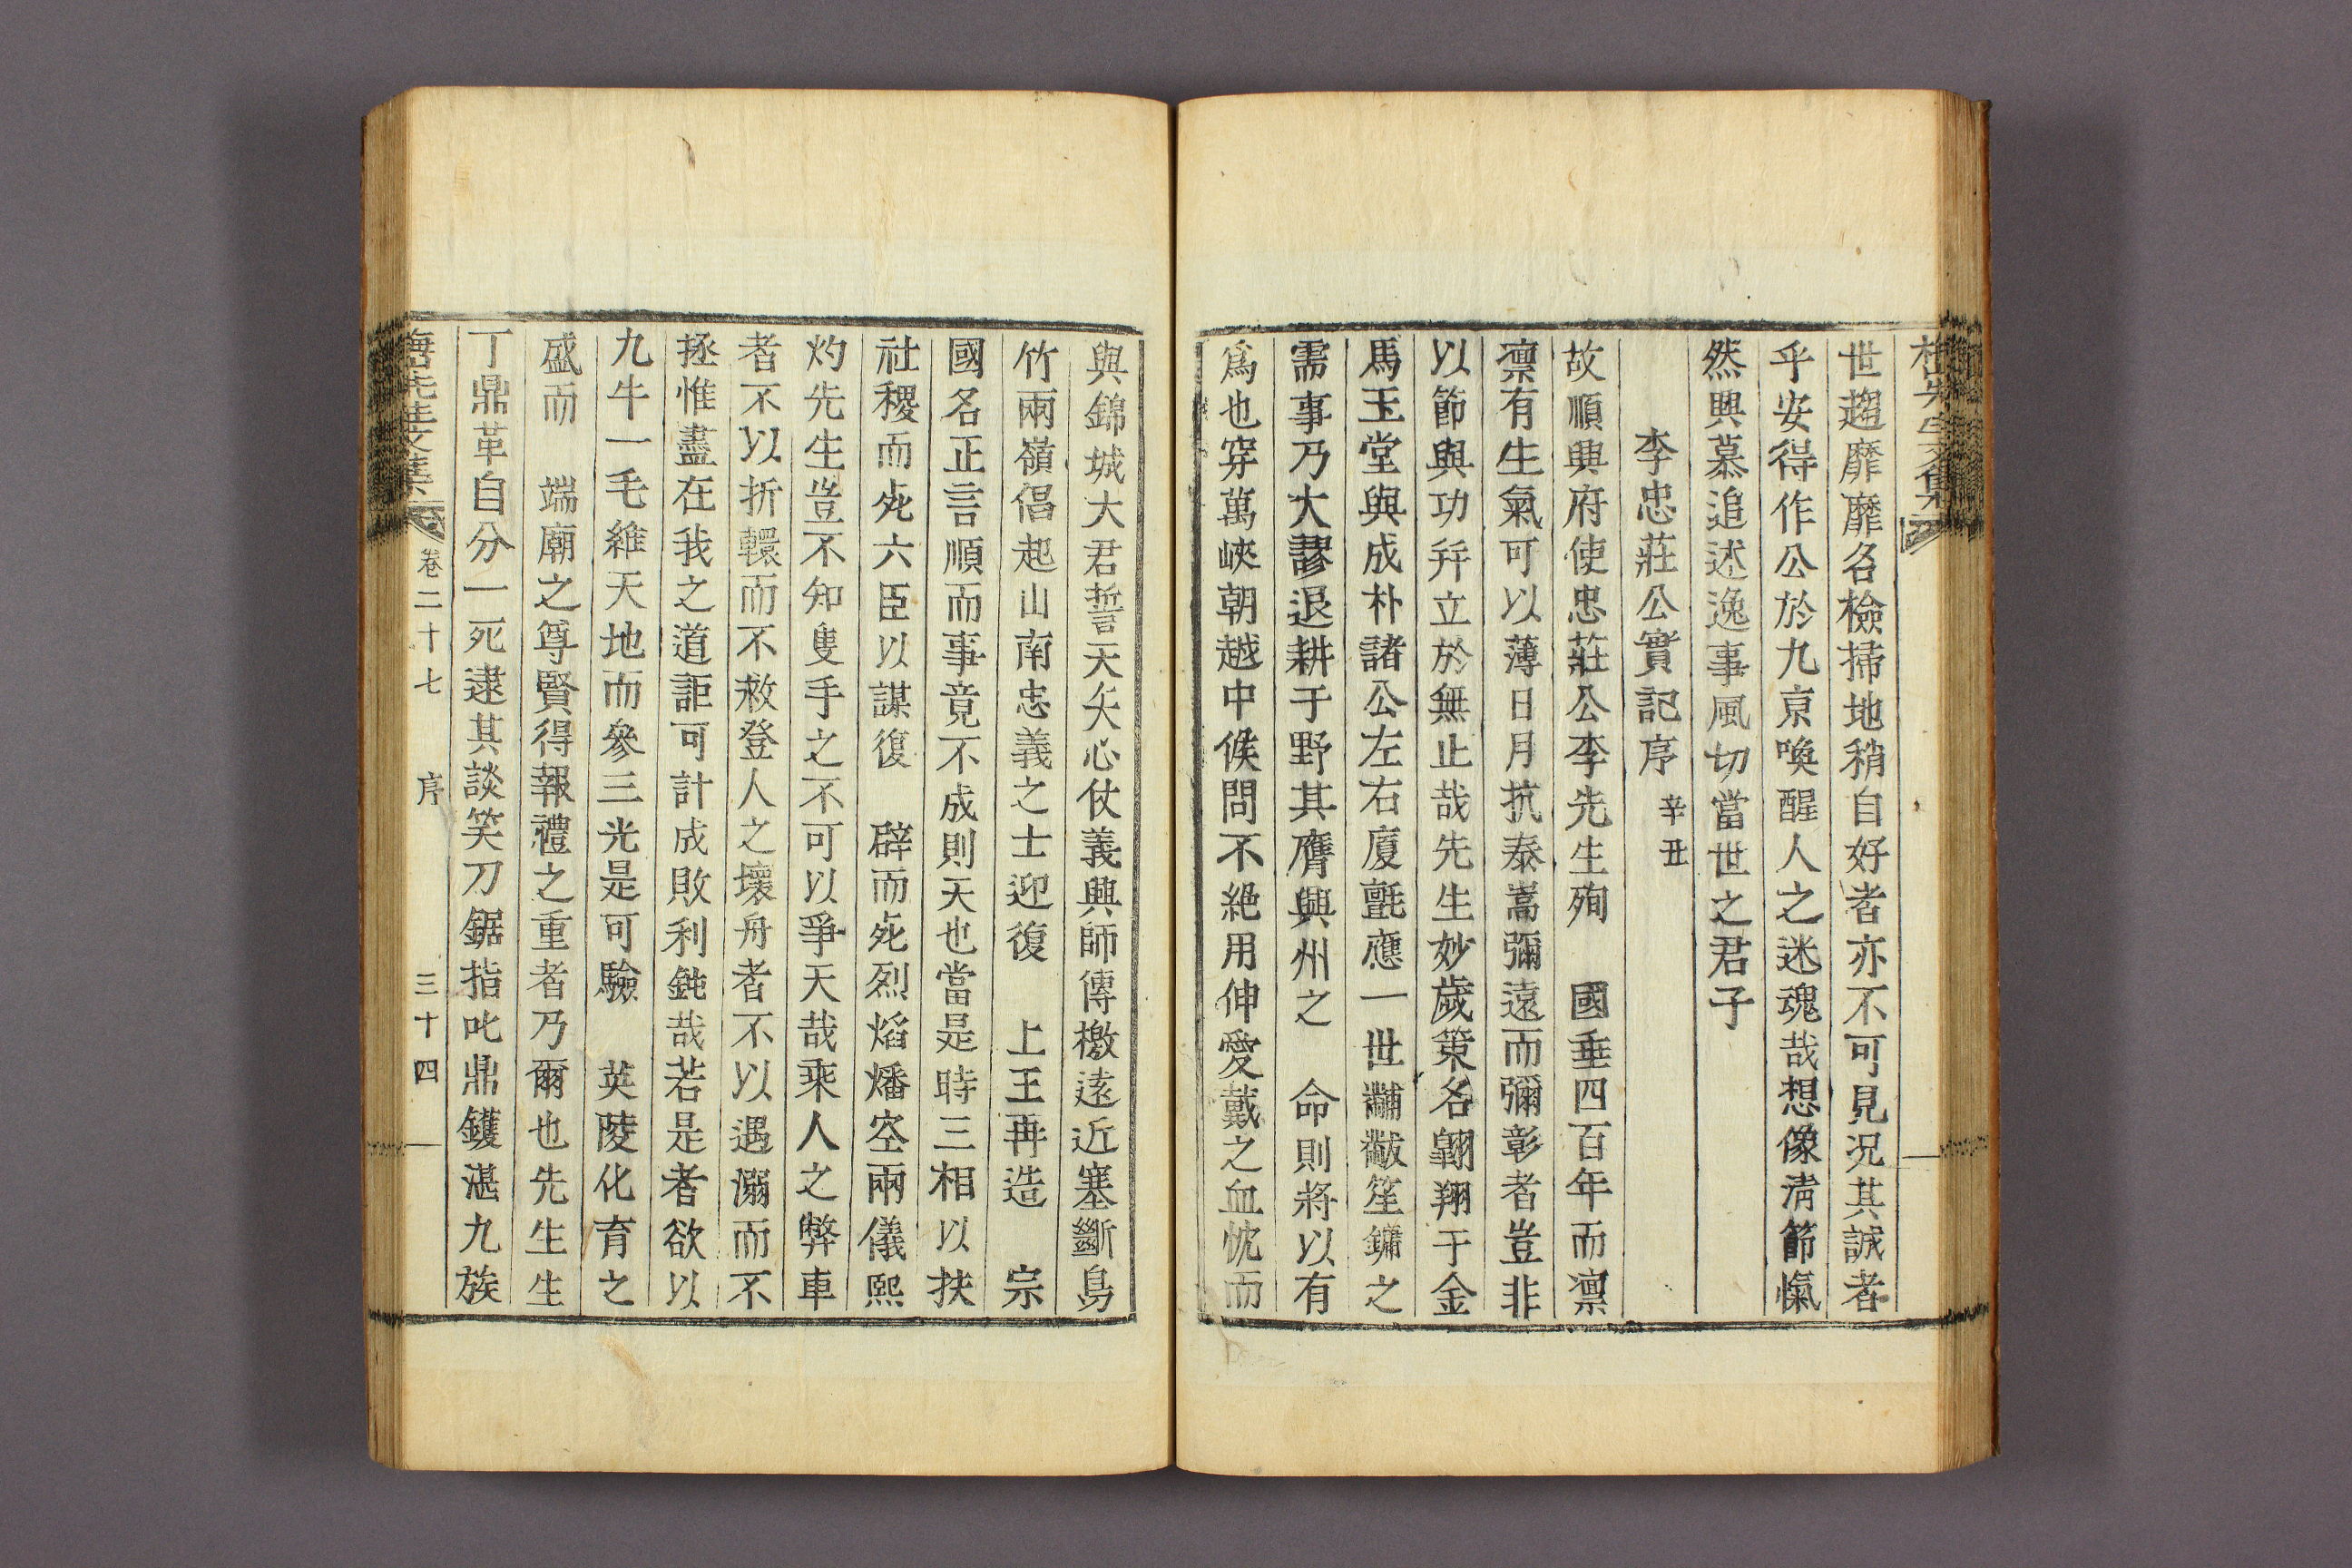 世趨靡靡名檢掃地稍自好者亦不可見况其誠者
乎安得作公於九亰喚醒人之迷魂哉想像清節愾
然興慕追述逸事風切當世之君子
李忠莊公實記序 辛丑
故順興府使忠莊公李先生殉 國垂四百年而凛
凛有生氣可以薄日月抗泰嵩彌遠而彌彰者豈非
以節與功幷立於無止哉先生妙歲策名翶翔于金
馬玉堂與成朴諸公左右廈氈應一世黼黻笙鏞之
需事乃大謬退耕于野其膺興州之 命則將以有
爲也穿萬峽朝越中候問不絶用伸愛戴之血忱而
與錦城大君誓天矢心仗義興師傳檄遠近塞斷鳥
竹兩嶺倡起山南忠義之士迎復 上王再造 宗
國名正言順而事竟不成則天也當是時三相以扶
社稷而死六臣以謀復 辟而死烈焰燔空兩儀熙
灼先生豈不知隻手之不可以爭天哉乘人之弊車
者不以折轘而不救登人之壞舟者不以遇溺而不
拯惟盡在我之道詎可計成敗利鈍哉若是者欲以
九牛一毛維天地而參三光是可驗 英陵化育之
盛而 端廟之尊賢得報禮之重者乃爾也先生生
丁鼎革自分一死逮其談笑刀鋸指叱鼎鑊湛九族
卷二十七 序 三十四